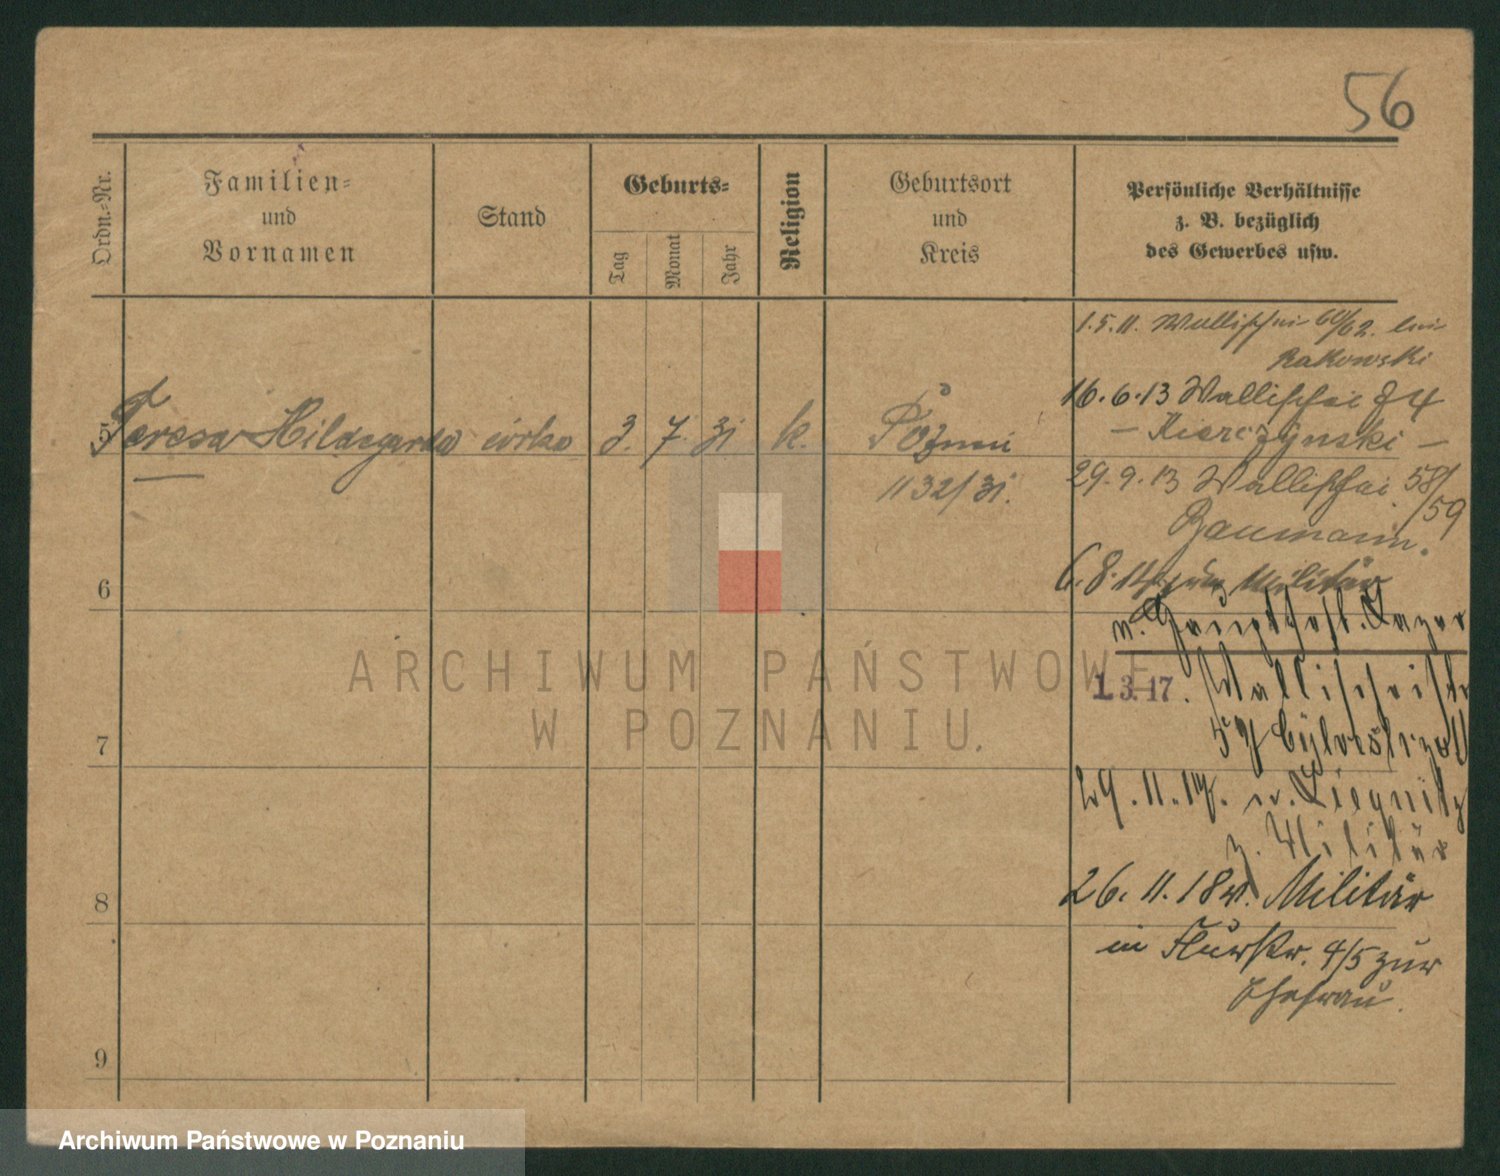 56
Ordn.-Nr.
Familien-
und
Vornamen
Stand
Geburts-
Tag
Monat
Jahr
Religion
Geburtsort
und
Kreis
Persönliche Verhältnisse
z. B. bezüglich
des Gewerbes usw.
5 Teresa Hildegarda córka 3. 7. 31 k. Poznań
1132/31.
6
7
8
9
1.5.11. Wallischei 60/62. bei
Rakowski
16.6.13 Wallischei 74
- Kierczynski -
29.9.13 Wallischei 58/
/59
Baumann.
6.8.14 zum Militär
n.
1.3.17. Wallischeistr
29.11.17. n. Liegnitz
z. Militär
26.11.18 v. Militär
in Flurstr. 4/5 zur
Ehefrau.
ARCHIWUM PAŃSTWOWE
W POZNANIU.
Archiwum Państwowe w Poznaniu